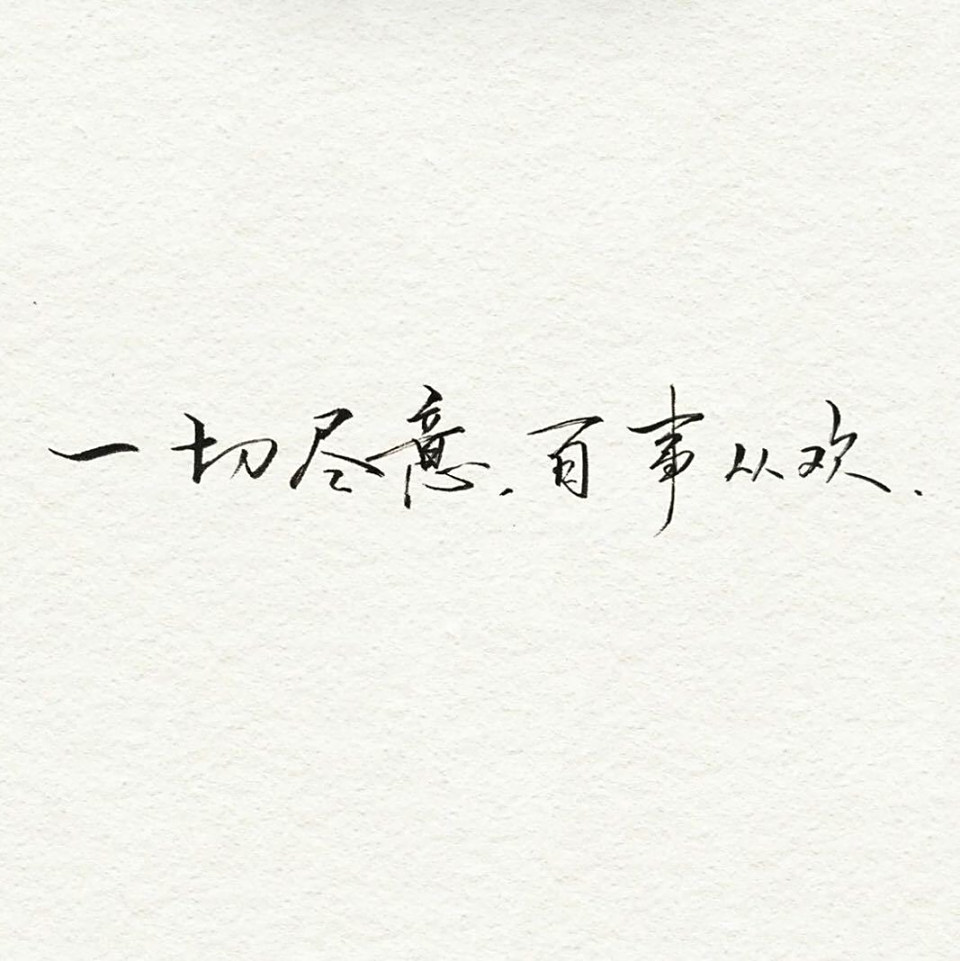 一切尽意.百事从欢.